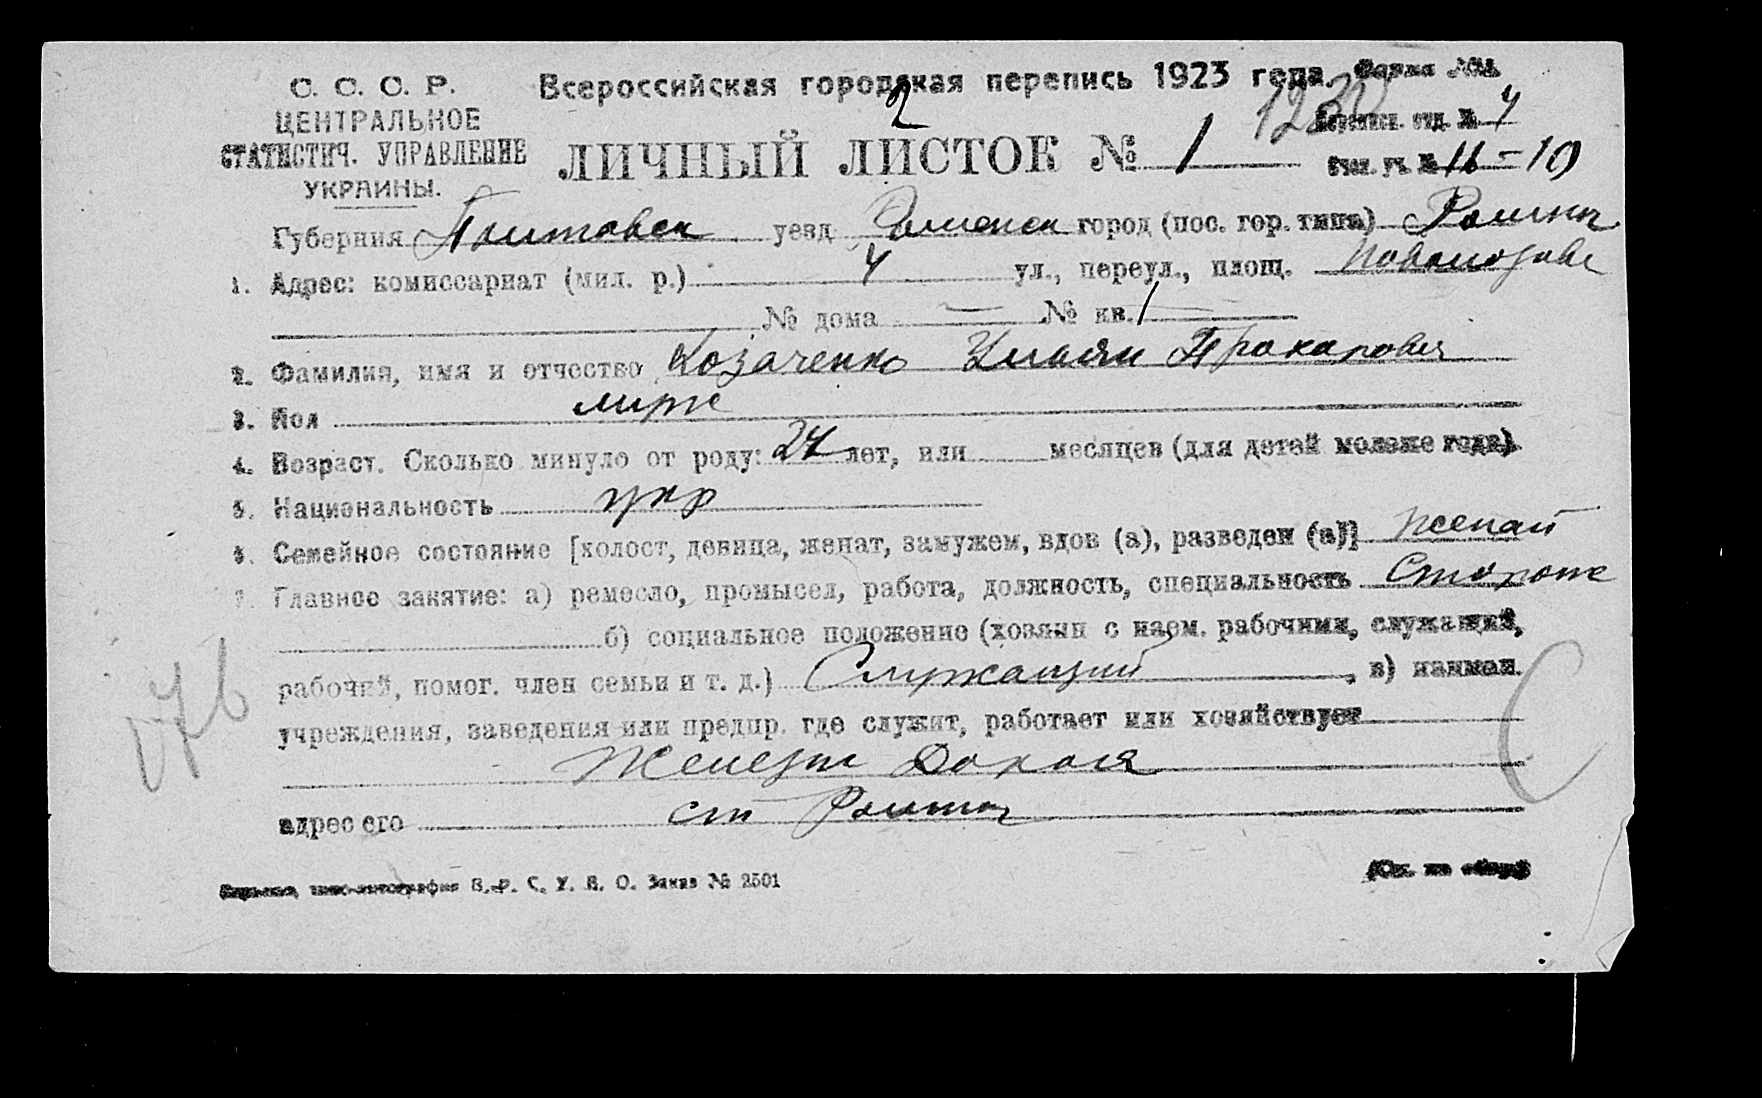 С. С. С. Р.
ЦЕНТРАЛЬНОЕ
СТАТИСТИЧ. УПРАВЛЕНИЕ
УКРАИНЫ.
Всероссийская городская перепись 1923 года.
Форма
2
ЛИЧНЫЙ ЛИСТОК № 1
отд. № 4
Счетн. уч. № 11 = 10
Губерния Полтавск уезд Роменск город (пос. гор. типа) Ромны
1. Адрес: комиссариат (мил. р.) 4 ул., переул., площ.
№ дома — № кв. 1
2. Фамилия, имя и отчество Козаченко Ульян Прокопович
3. Пол муж
4. Возраст. Сколько минуло от роду: 24 лет, или месяцев (для детей моложе года).
5. Национальность укр
6. Семейное состояние [холост, девица, женат, замужем, вдов (а), разведен (а)] женат
7. Главное занятие: а) ремесло, промысел, работа, должность, специальность Сторож
б) социальное положение (хозяин с наем. рабочими, служащий,
рабочий, помог. член семьи и т. д.) Служащий, в) наимен.
учреждения, заведения или предпр. где служит, работает или хозяйствует
Железн Дорога
адрес его ст Ромны
В. Р. С. У. В. О. Заказ № 2501
(См. на обор.)